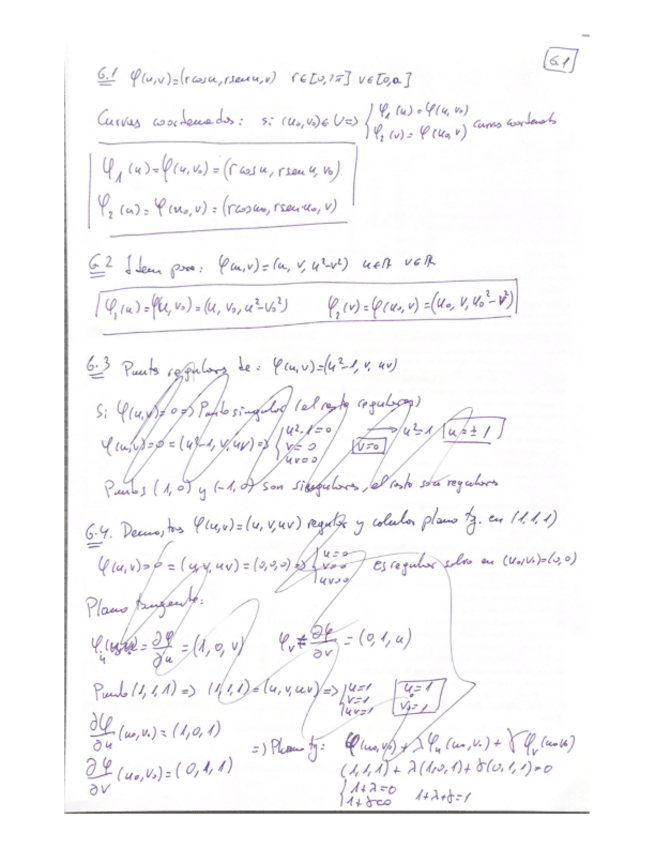 G1
6.1 φ(u,v)=(r cosu, r senu, v) r∈[0,2π] v∈[0,a]
Curvas coordenadas: si (u₀,v₀)∈U=> { φ₁(u)=φ(u,v₀)
φ₂(v)=φ(u₀,v) curvas coordenadas
φ₁(u)=φ(u,v₀)=(r cosu, r senu, v₀)
φ₂(u)=φ(u₀,v)=(r cosu₀, r senu₀, v)
6.2 Idem para: φ(u,v)=(u, v, u²-v²) u∈R v∈R
φ₁(u)=φ(u,v₀)=(u, v₀, u²-v₀²) φ₂(v)=φ(u₀,v)=(u₀, v, u₀²-v²)
6.3 Puntos regulares de: φ(u,v)=(u²-1, v, uv)
Si φ(u,v)=0=> Punto singular (el resto regulares)
φ(u,v)=0=(u²-1, v, uv)=> { u²-1=0 → u²=1 u=±1
v=0 v=0
uv=0
Puntos (1,0) y (-1,0) son singulares, el resto son regulares
6.4. Demostrar φ(u,v)=(u,v,uv) regular y calcular plano tg. en (1,1,1)
φ(u,v)=0=(u,v,uv)=(0,0,0)=> { u=0
v=0 es regular salvo en (u₀,v₀)=(0,0)
uv=0
Plano tangente:
φu = ∂φ/∂u = (1,0,v) φv = ∂φ/∂v = (0,1,u)
Punto (1,1,1) => (1,1,1)=(u,v,uv)=> { u=1 u₀=1
v=1 v₀=1
uv=1
∂φ/∂u (u₀,v₀)=(1,0,1)
=> Plano tg: φ(u₀,v₀)+λφu(u₀,v₀)+γφv(u₀,v₀)
∂φ/∂v (u₀,v₀)=(0,1,1) (1,1,1)+λ(1,0,1)+γ(0,1,1)=0
{ 1+λ=0
1+γ=0 1+λ+γ=1